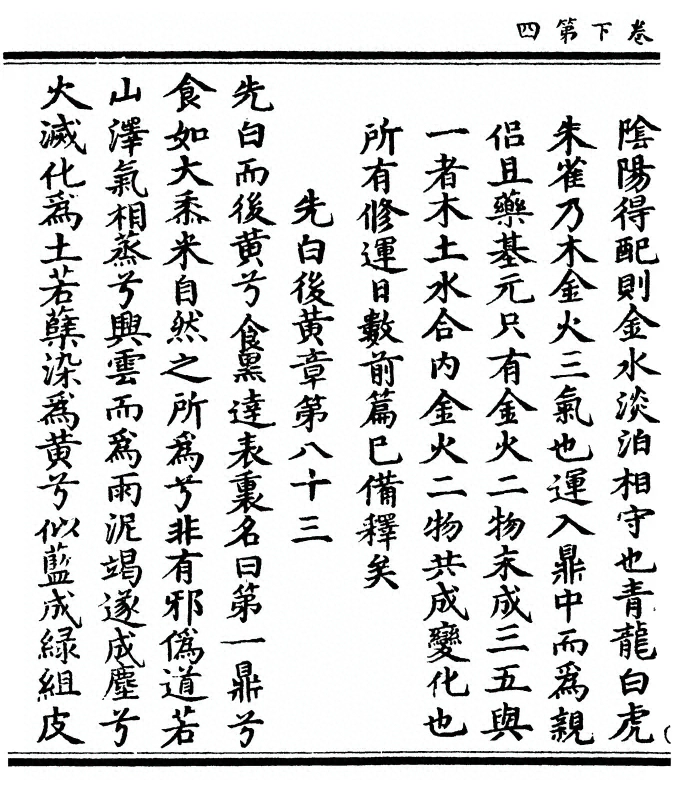 卷下第四
陰陽得配則金水淡泊相守也青龍白虎
朱雀乃木金火三氣也運入鼎中而爲親
侣且藥基元只有金火二物末成三五與
一者木土水合内金火二物共成變化也
所有修運日數前篇已備釋矣
先白後黄章第八十三
先白而後黄兮食黑達表裏名曰第一鼎兮
食如大黍米自然之所爲兮非有邪僞道若
山澤氣相蒸兮興雲而爲雨泥竭遂成塵兮
火滅化爲土若蘖染爲黄兮似藍成緑組皮